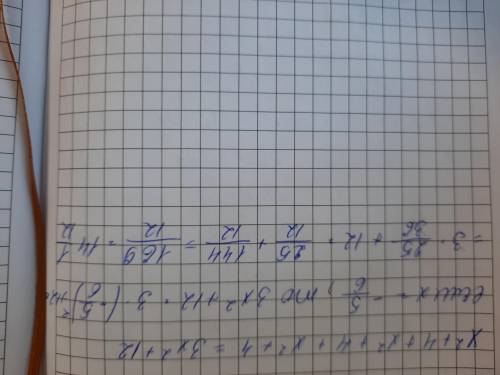 x² + 4 + x² + 4 + x² + 4 = 3x² + 12
если x = - 5/6, то 3x² + 12 = 3 · (-5/6)² + 12 =
= 3 · 25/36 + 12 = 25/12 + 144/12 = 169/12 = 14 1/12